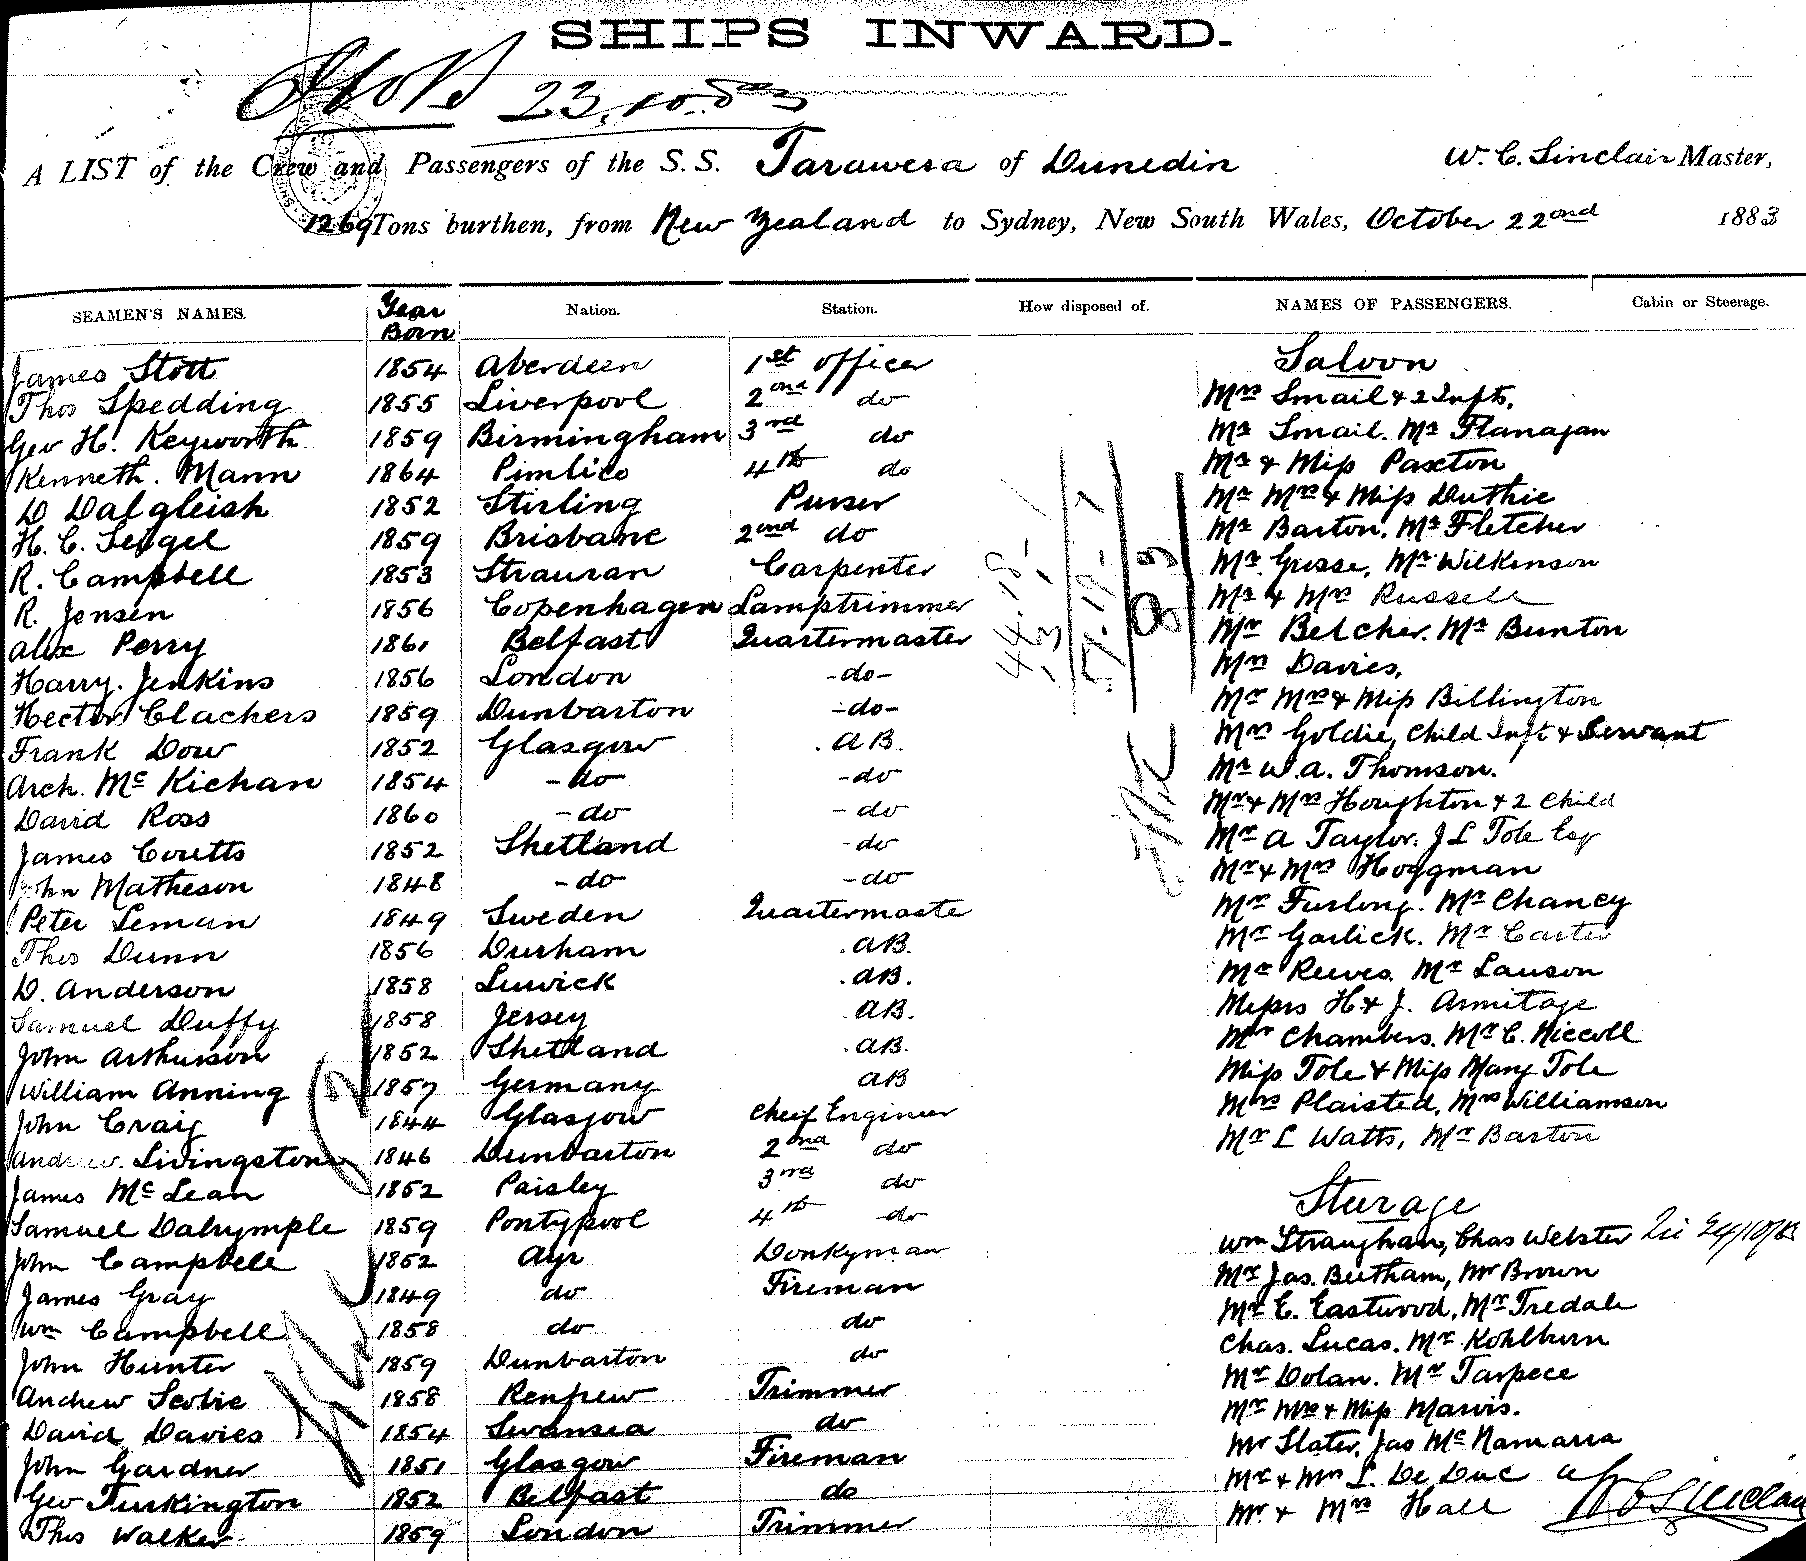 SHIPS INWARD.
23.10.83
A LIST of the Crew and Passengers of the S.S. Tarawera of Dunedin W. C. Sinclair Master,
1269 Tons burthen, from New Zealand to Sydney, New South Wales, October 22nd 1883
SEAMEN'S NAMES. Year Born Nation. Station. How disposed of. NAMES OF PASSENGERS. Cabin or Steerage.
James Stott 1854 Aberdeen 1st officer Saloon
Thos Spedding 1855 Liverpool 2ond do Mrs Smail & 2 Infts.
Geo H. Keyworth 1859 Birmingham 3rd do Mr Smail. Mr Flanagan
Kenneth. Mann 1864 Pimlico 4th do Mr & Miss Paxton
D Dalgleish 1852 Stirling Purser Mr Mrs & Miss Duthie
H. C. Seigel 1859 Brisbane 2ond do Mr Barton. Mr Fletcher
R. Campbell 1853 Strauran Carpenter Mr Gusse, Mr Wilkinson
R. Jensen 1856 Copenhagen Lamptrimmer Mr & Mrs Russell
Alex Perry 1861 Belfast Quartermaster Mr Belcher. Mr Bunton
Harry. Jenkins 1856 London -do- Mrs Davies,
Hector Clachers 1859 Dunbarton -do- Mr Mrs & Miss Billington
Frank Dow 1852 Glasgow AB. Mrs Goldie, Child Inft & Servant
Arch. Mc Kichan 1854 - do - do Mr W. A. Thomson.
David Ross 1860 - do - do Mr & Mrs Houghton & 2 Child
James Coutts 1852 Shetland - do Mr A Taylor. J L Tole Esq
John Matheson 1848 - do - do Mr & Mrs Hoggman
Peter Leman 1849 Sweden Quartermaste Mr Furlong. Mr Chaney
Thos Dunn 1856 Durham AB. Mr Garlick. Mr Carter
D. Anderson 1858 Lerwick AB. Mr Reeves. Mr Lauson
Samuel Duffy 1858 Jersey AB. Messrs H & J. Armitage
John Arthurson 1852 Shetland AB. Mr Chambers. Mr C. Niccoll
William Anning 1857 Germany AB Miss Tole & Miss Mary Tole
John Craig 1844 Glasgow Cheif Engineer Mrs Plaisted, Mrs Williamson
Andrew. Livingstone 1846 Dunbarton 2nd do Mr L Watts, Mr Barton
James Mc Lean 1852 Paisley 3rd do
Samuel Dalrymple 1859 Pontypool 4th do Sturage
John Campbell 1852 Ayr Donkyman Wm Straughan, Chas Webster
James Gray 1849 do Fireman Mr Jas. Beetham, Mr Brown
Wm Campbell 1858 do do Mr E. Eastwood, Mr Tredale
John Hunter 1859 Dunbarton do Chas. Lucas. Mr Kohlburn
Andrew Scobie 1858 Renfrew Trimmer Mr Dolan. Mr Tarpece
David Davies 1854 Swansea do Mr Mrs & Miss Marvis.
John Gardner 1851 Glasgow Fireman Mr Slater, Jas Mc Namarra
Geo Turkington 1852 Belfast do Mr & Mrs L. De Duc
Thos Walker 1859 London Trimmer Mr & Mrs Hall W C Sinclair